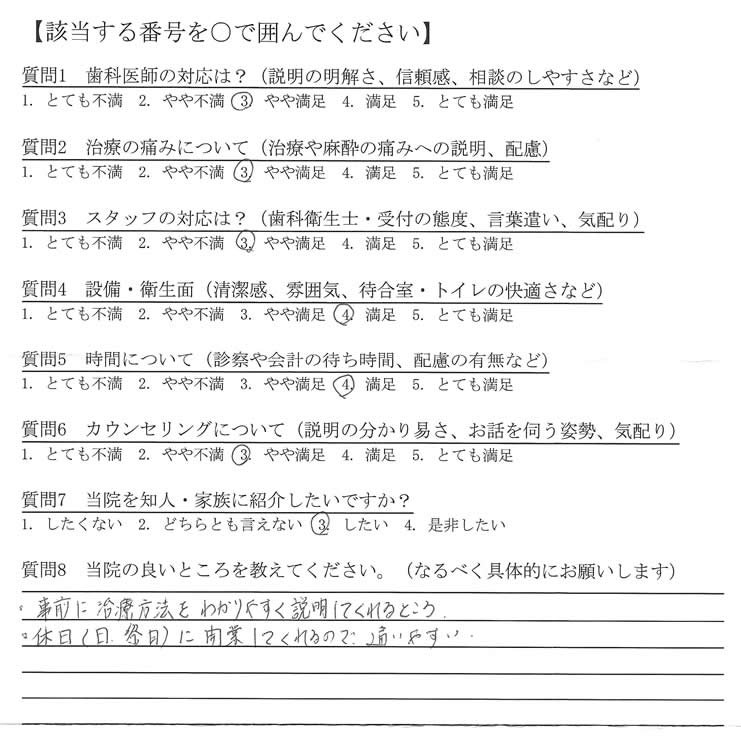 【該当する番号を○で囲んでください】
質問1　歯科医師の対応は？（説明の明解さ、信頼感、相談のしやすさなど）
1. とても不満　2. やや不満　3. やや満足　4. 満足　5. とても満足
質問2　治療の痛みについて（治療や麻酔の痛みへの説明、配慮）
1. とても不満　2. やや不満　3. やや満足　4. 満足　5. とても満足
質問3　スタッフの対応は？（歯科衛生士・受付の態度、言葉遣い、気配り）
1. とても不満　2. やや不満　3. やや満足　4. 満足　5. とても満足
質問4　設備・衛生面（清潔感、雰囲気、待合室・トイレの快適さなど）
1. とても不満　2. やや不満　3. やや満足　4. 満足　5. とても満足
質問5　時間について（診察や会計の待ち時間、配慮の有無など）
1. とても不満　2. やや不満　3. やや満足　4. 満足　5. とても満足
質問6　カウンセリングについて（説明の分かり易さ、お話を伺う姿勢、気配り）
1. とても不満　2. やや不満　3. やや満足　4. 満足　5. とても満足
質問7　当院を知人・家族に紹介したいですか？
1. したくない　2. どちらとも言えない　3. したい　4. 是非したい
質問8　当院の良いところを教えてください。（なるべく具体的にお願いします）
。事前に治療方法をわかりやすく説明してくれるところ.
。休日（日.祭日）に開業してくれるので.通いやすい.